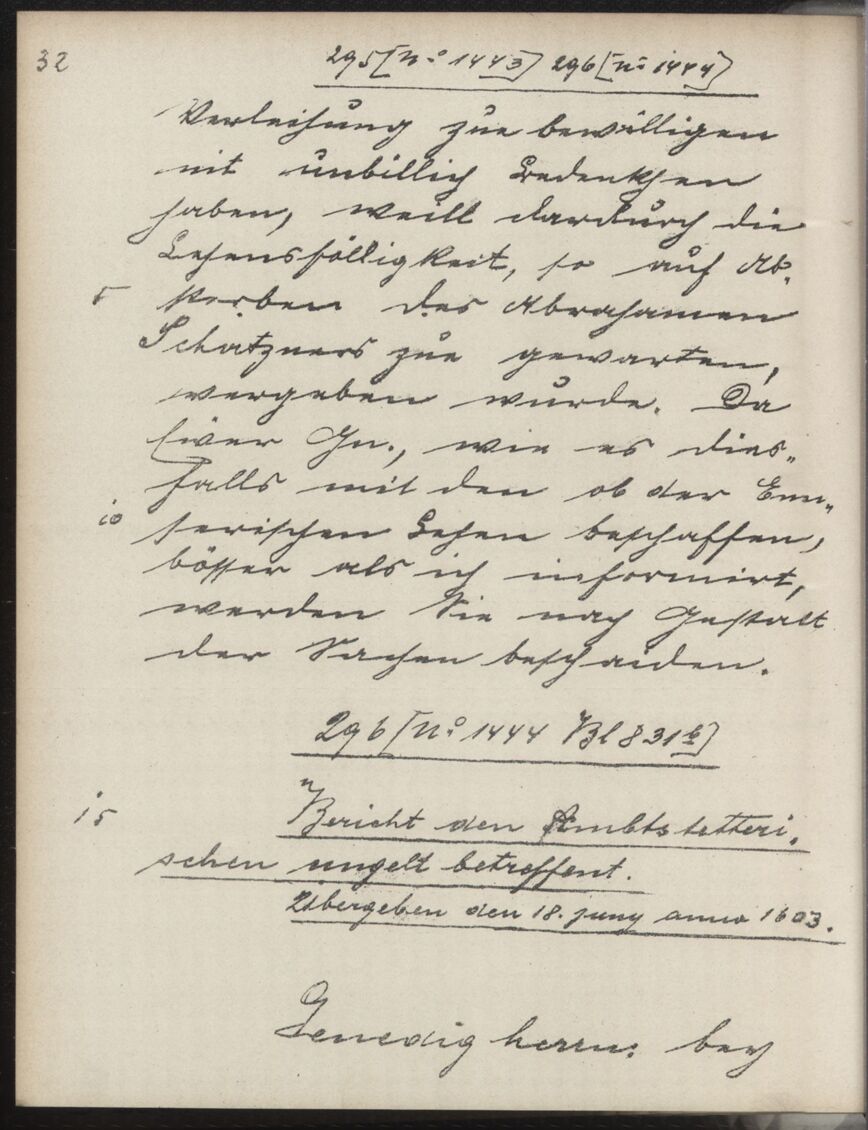 32
295 [No 1443] 296 [No 1444]
Verleihung zue bewilligen
nit unbillich Bedenkhen
haben, weill dardurch die
Lehensfölligkeit, so auf Ab„
5 sterben des Abrahamen
Schatzners zue gewarten,
vergeben wurde. Da
Euer Gn., wie es dies„
falls mit den ob der Enn„
10 serischen Lehen beschaffen,
bösser als ich informirt,
werden Sie nach Gestalt
der Sachen beschaiden.
296 [No 1444 Bl 831b]
15 "Bericht den Ambtstetteri„
schen ungelt betreffent.
Übergeben den 18. juny anno 1603.
Genedig herrn: bey